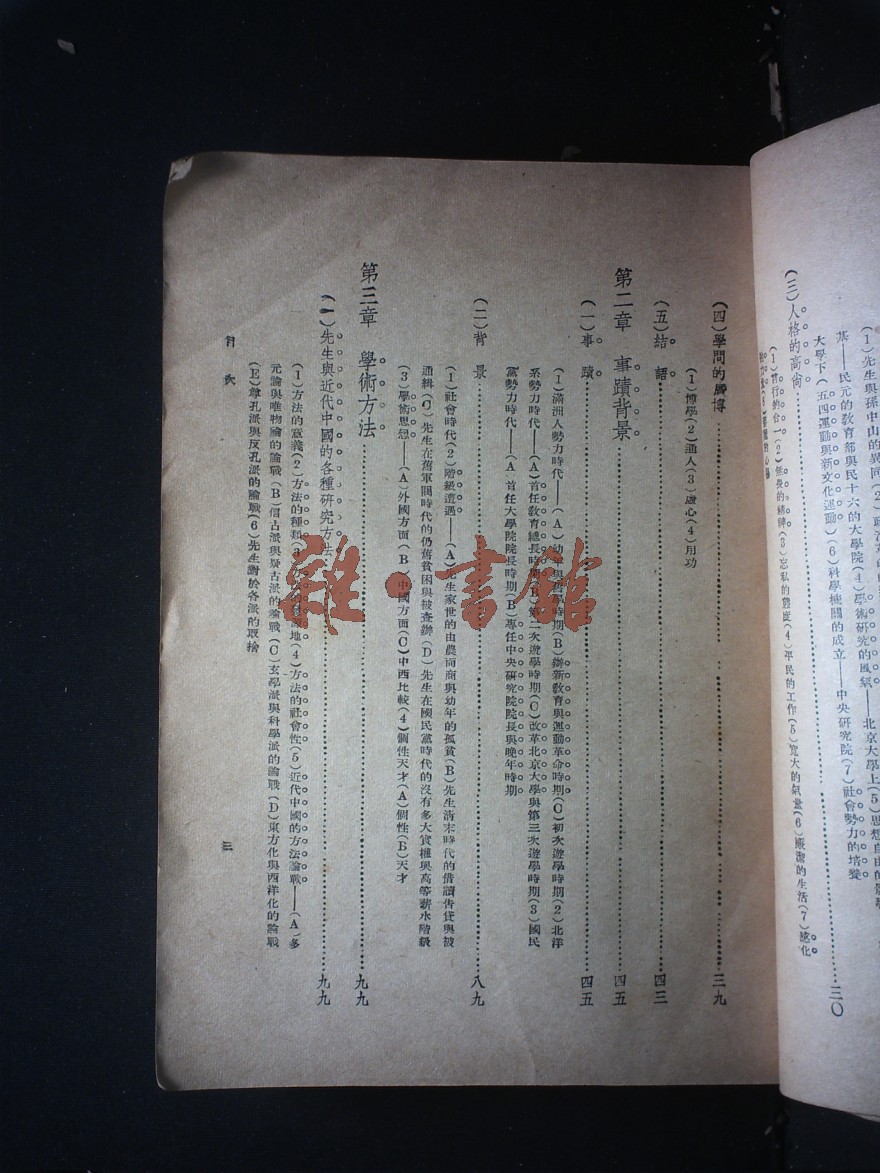 (1)先生與孫中山的異同(2)
蔡——民元的教育部與民十六的大學院(4)學術研究的風氣——北京大學上(5)思想自由的
大學下(五四運動與新文化運動)(6)科學機關的成立——中央研究院(7)社會勢力的培養
(三)人格的高尚……三〇
(1)言行的合一(2)(3)忘私的態度(4)平民的工作(5)寬大的氣量(6)廉潔的生活(7)感化
(四)學問的廣博……三九
(1)博學(2)通人(3)虛心(4)用功
(五)結語……四三
第二章 事蹟背景……四五
(一)事蹟……四五
(1)滿洲人勢力時代——(A)幼年與舊學時期(B)辦新教育與運動革命時期(C)初次遊學時期(2)北洋
系勢力時代——(A)首任教育總長時期(B)第二次遊學時期(C)改革北京大學與第三次遊學時期(3)國民
黨勢力時代——(A)首任大學院院長時期(B)專任中央研究院院長與晚年時期
(二)背景……八九
(1)社會時代(2)階級遭遇——(A)先生家世的由農而商與幼年的孤貧(B)先生清末時代的借讀告貸與被
通緝(C)先生在舊軍閥時代的仍舊貧困與被查辦(D)先生在國民黨時代的沒有多大實權與高等薪水階級
(3)學術思想——(A)外國方面(B)中國方面(C)中西比較(4)個性天才(A)個性(B)天才
第三章 學術方法……九九
(一)先生與近代中國的各種研究方法……九九
(1)方法的意義(2)方法的種類(3)方法的發源地(4)方法的社會性(5)近代中國的方法論戰——(A)多
元論與唯物論的論戰(B)信古派與疑古派的論戰(C)玄學派與科學派的論戰(D)東方化與西洋化的論戰
(E)尊孔派與反孔派的論戰(6)先生對於各派的取捨
目次
三
雜·書館